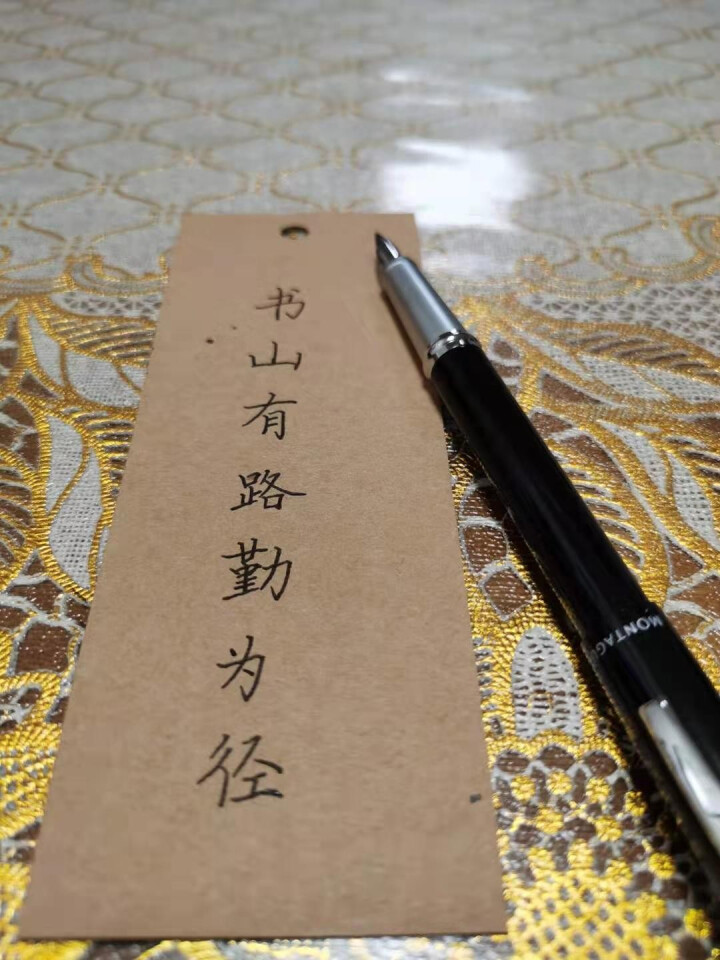 书山有路勤为径
MONTAG